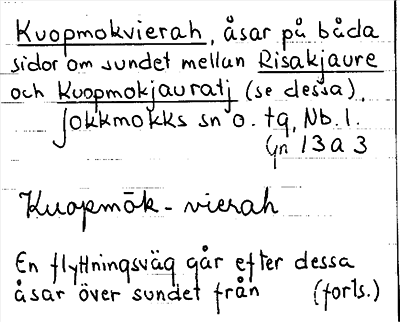 Kuopmokvierah, åsar på båda
sidor om sundet mellan Risakjaure
och Kuopmokjauratj (se dessa),
Jokkmokks sn o. tg, Nb. l.
Gn 13 a 3
Kuopmōk - vierah
En flyttningsväg går efter dessa
åsar över sundet från (forts.)